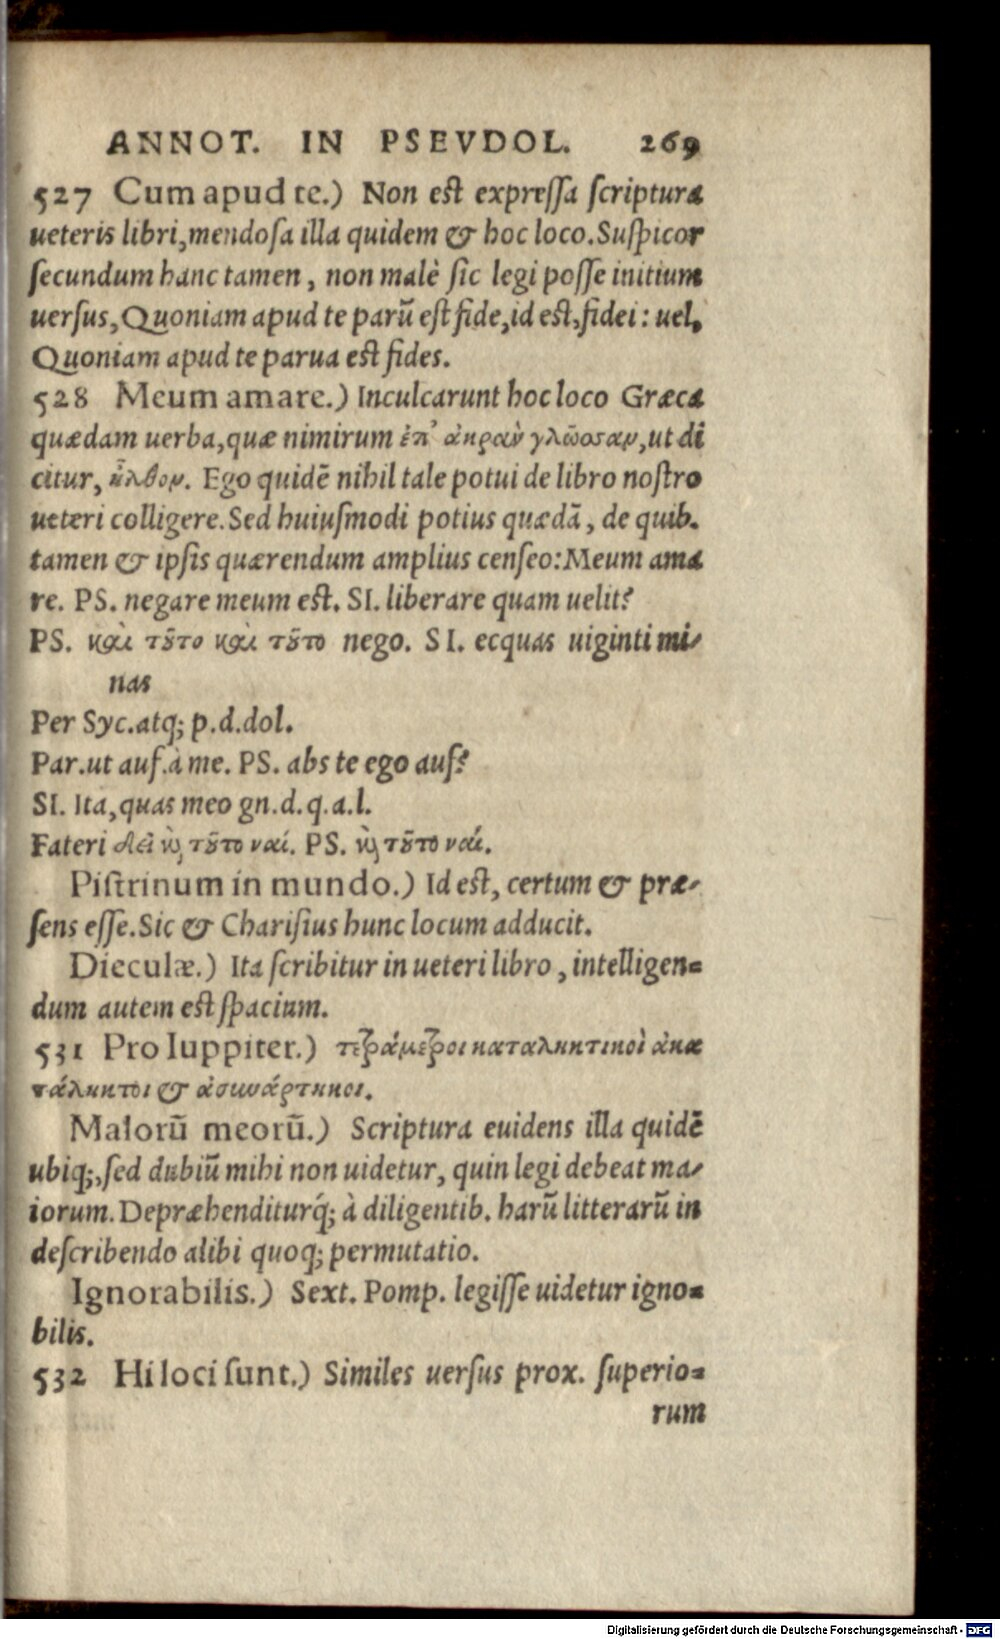 ANNOT. IN PSEVDOL. 269
527 Cum apud te.) Non est expressa scriptura
ueteris libri, mendosa illa quidem & hoc loco. Suspicor
secundum hanc tamen, non malè sic legi posse initium
uersus, Quoniam apud te parū est fide, id est, fidei: uel,
Quoniam apud te parua est fides.
528 Meum amare.) Inculcarunt hoc loco Græca
quædam uerba, quæ nimirum ἐπ' ἄκραν γλῶοσαν, ut di
citur, ἦλθον. Ego quidē nihil tale potui de libro nostro
ueteri colligere. Sed huiusmodi potius quædā, de quib.
tamen & ipsis quærendum amplius censeo: Meum ama
re. PS. negare meum est. SI. liberare quam uelit?
PS. καὶ τοῦτο καὶ τοῦτο nego. SI. ecquas uiginti mi-
nas
Per Syc. atq; p.d.dol.
Par. ut auf. à me. PS. abs te ego auf?
SI. Ita, quas meo gn.d.q.a.l.
Fateri δεῖ καὶ τοῦτο ναί. PS. καὶ τοῦτο ναί.
Pistrinum in mundo.) Id est, certum & præ-
sens esse. Sic & Charisius hunc locum adducit.
Dieculæ.) Ita scribitur in ueteri libro, intelligen-
dum autem est spacium.
531 Pro Iuppiter.) τετράμετροι καταληκτικοὶ ἀκα
τάληκτοι & ἀσυνάρτηκοι.
Maloru̅ meoru̅.) Scriptura euidens illa quidē
ubiq;, sed dubiū mihi non uidetur, quin legi debeat ma-
iorum. Depræhenditurq́; à diligentib. harū litterarū in
describendo alibi quoq; permutatio.
Ignorabilis.) Sext. Pomp. legisse uidetur igno-
bilis.
532 Hi loci sunt.) Similes uersus prox. superio-
rum
Digitalisierung gefördert durch die Deutsche Forschungsgemeinschaft - DFG